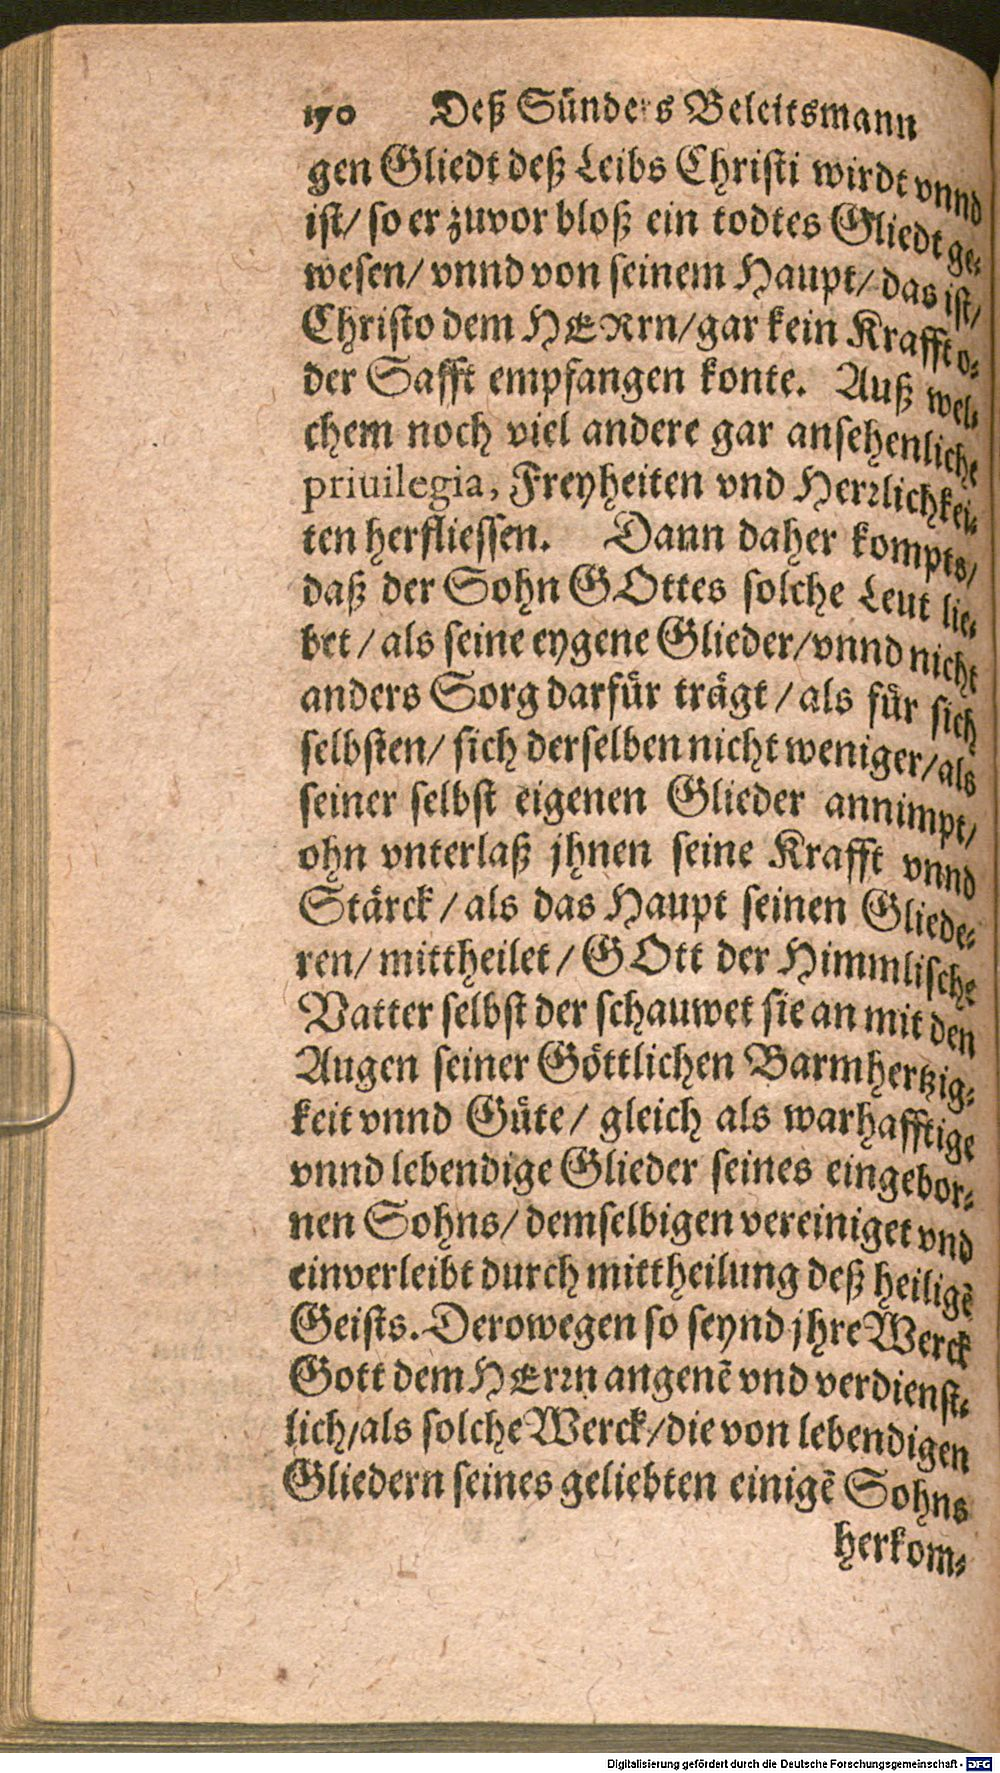 170 Deß Sünders Beleitsmann
gen Gliedt deß Leibs Christi wirdt vnnd
ist/ so er zuvor bloß ein todtes Gliedt ge-
wesen/ vnnd von seinem Haupt/ das ist/
Christo dem HERrn/ gar kein Krafft o-
der Safft empfangen konte. Auß wel-
chem noch viel andere gar ansehenliche
priuilegia, Freyheiten vnd Herrlichkei-
ten herfliessen. Dann daher kompts/
daß der Sohn GOttes solche Leut lie-
bet / als seine eygene Glieder/ vnnd nicht
anders Sorg darfür trägt / als für sich
selbsten/ sich derselben nicht weniger/ als
seiner selbst eigenen Glieder annimpt/
ohn vnterlaß jhnen seine Krafft vnnd
Stärck / als das Haupt seinen Gliede-
ren/ mittheilet / GOtt der Himmlische
Vatter selbst der schauwet sie an mit den
Augen seiner Göttlichen Barmhertzig-
keit vnnd Güte/ gleich als warhafftige
vnnd lebendige Glieder seines eingebor-
nen Sohns/ demselbigen vereiniget vnd
einverleibt durch mittheilung deß heiligē
Geists. Derowegen so seynd jhre Werck
Gott dem HErrn angenē vnd verdienst-
lich/ als solche Werck/ die von lebendigen
Gliedern seines geliebten einigē Sohns
herkom-
Digitalisierung gefördert durch die Deutsche Forschungsgemeinschaft - DFG